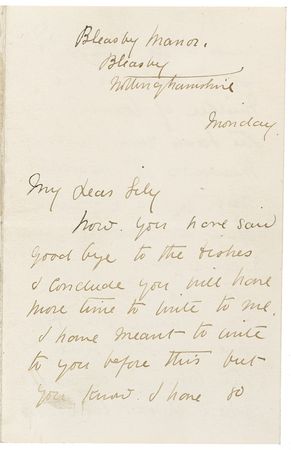 Bleasby Manor.
Bleasby
Nottinghamshire
Monday.
My Dear Lily
Now. you have said
good bye to the
I conclude you will have
more time to write to me.
I have meant to write
to you before this but
you know. I have so